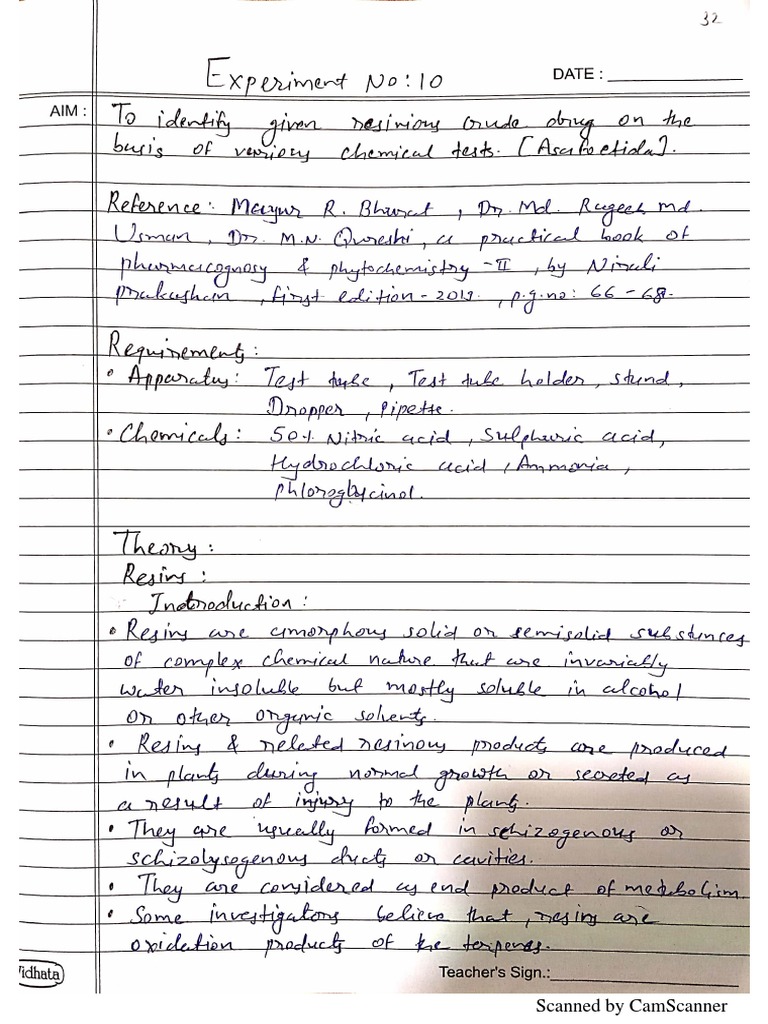 32
Experiment No: 10
DATE :
AIM :
To identify given resinious crude drug on the
basis of various chemical tests. [Asafoetida].
Reference: Mayur R. Bharat , Dr. Md. Rageeb md.
Usman , Dr. M.N. Qureshi , a practical book of
pharmacognosy & phytochemistry -II , by Nirali
prakashan , first edition - 2019. , p.g.no: 66 - 68.
Requirement :
• Apparatus: Test tube , Test tube holder , stand ,
Dropper , Pipette.
• Chemicals : 50% Nitric acid , Sulphuric acid,
Hydrochloric acid , Ammonia ,
phloroglycinol.
Theory :
Resins :
Inotroduction :
• Resins are amorphous solid or semisolid substances
of complex chemical nature that are invariably
water insoluble but mostly soluble in alcohol
or other organic solvents.
• Resins & related resinous products are produced
in plants during normal growth or secreted as
a result of injury to the plants.
• They are usually formed in schizogenous or
schizolysogenous ducts or cavities.
• They are considered as end product of metabolism.
• Some investigators believe that , resins are
oxidation products of the terpenes.
Vidhata
Teacher's Sign.:
Scanned by CamScanner